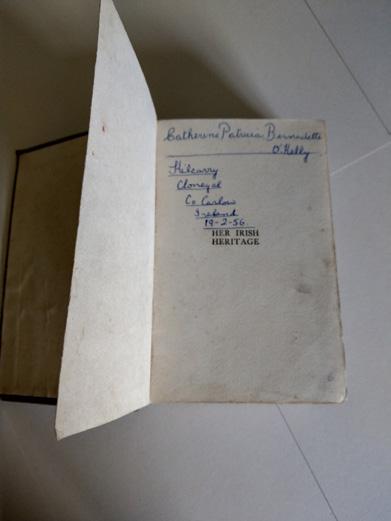 Catherine Patricia Bernadette
O'Kelly
Kilcarry
Clonegal
Co Carlow
Ireland
19-2-56
HER IRISH
HERITAGE